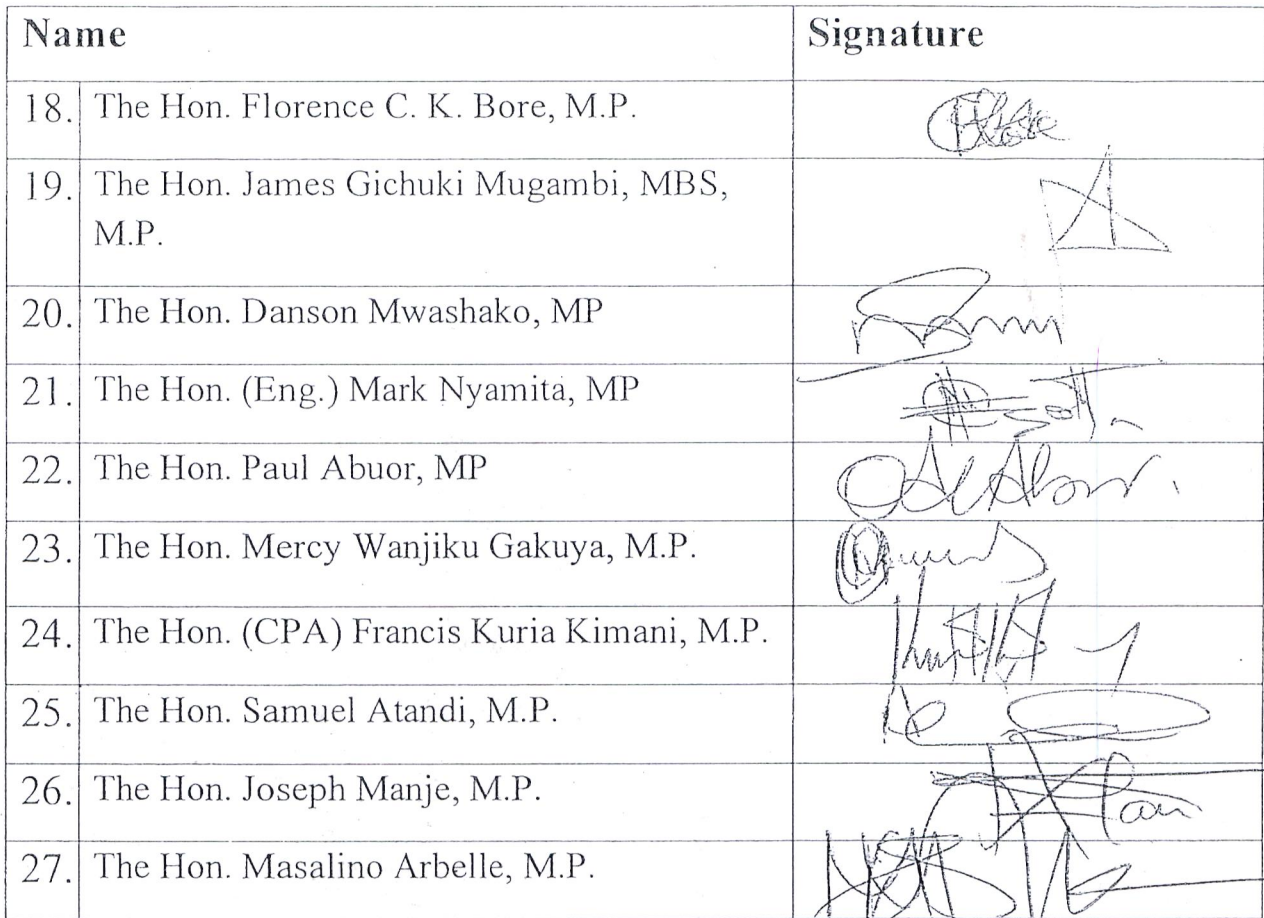 Name Signature
18. The Hon. Florence C. K. Bore, M.P.
19. The Hon. James Gichuki Mugambi, MBS,
M.P.
20. The Hon. Danson Mwashako, MP
21. The Hon. (Eng.) Mark Nyamita, MP
22. The Hon. Paul Abuor, MP
23. The Hon. Mercy Wanjiku Gakuya, M.P.
24. The Hon. (CPA) Francis Kuria Kimani, M.P.
25. The Hon. Samuel Atandi, M.P.
26. The Hon. Joseph Manje, M.P.
27. The Hon. Masalino Arbelle, M.P.